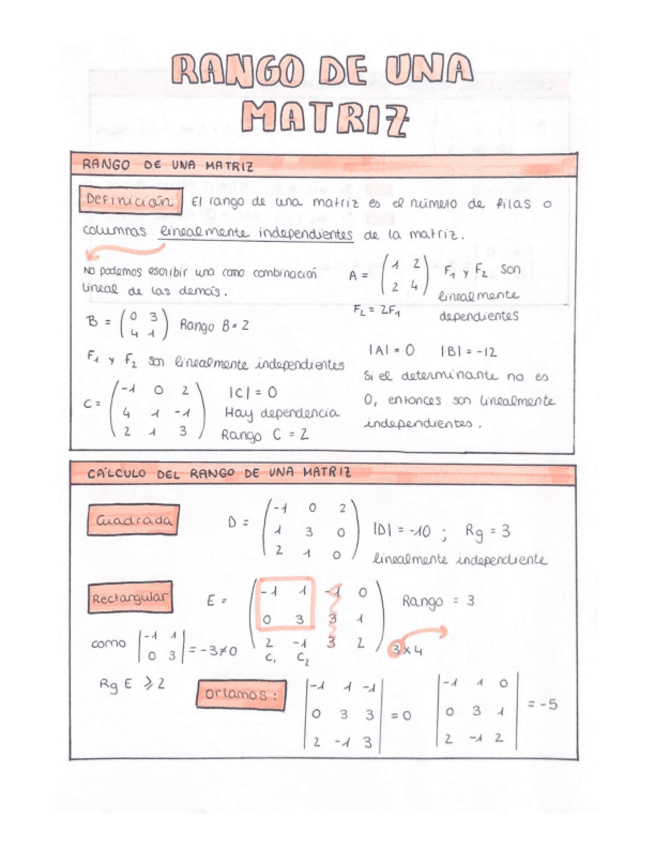 RANGO DE UNA
MATRIZ
RANGO DE UNA MATRIZ
Definición El rango de una matriz es el número de filas o
columnas linealmente independientes de la matriz.
No podemos escribir una como combinación
lineal de las demás.
A = ( 1 2 / 2 4 ) F₁ y F₂ son
linealmente
dependientes
F₂ = 2F₁
B = ( 0 3 / 4 1 ) Rango B = 2
F₁ y F₂ son linealmente independientes
|A| = 0 |B| = -12
Si el determinante no es
0, entonces son linealmente
independientes.
C = ( -1 0 2 / 4 1 -1 / 2 1 3 )
|C| = 0
Hay dependencia
Rango C = 2
CÁLCULO DEL RANGO DE UNA MATRIZ
Cuadrada
D = ( -1 0 2 / 1 3 0 / 2 1 0 )
|D| = -10 ; Rg = 3
linealmente independiente
Rectangular
E = ( -1 1 -1 0 / 0 3 3 1 / 2 -1 3 2 )
C₁ C₂
Rango = 3
3x4
como | -1 1 / 0 3 | = -3 ≠ 0
Rg E ⩾ 2
Orlamos:
| -1 1 -1 / 0 3 3 / 2 -1 3 | = 0
| -1 1 0 / 0 3 1 / 2 -1 2 | = -5